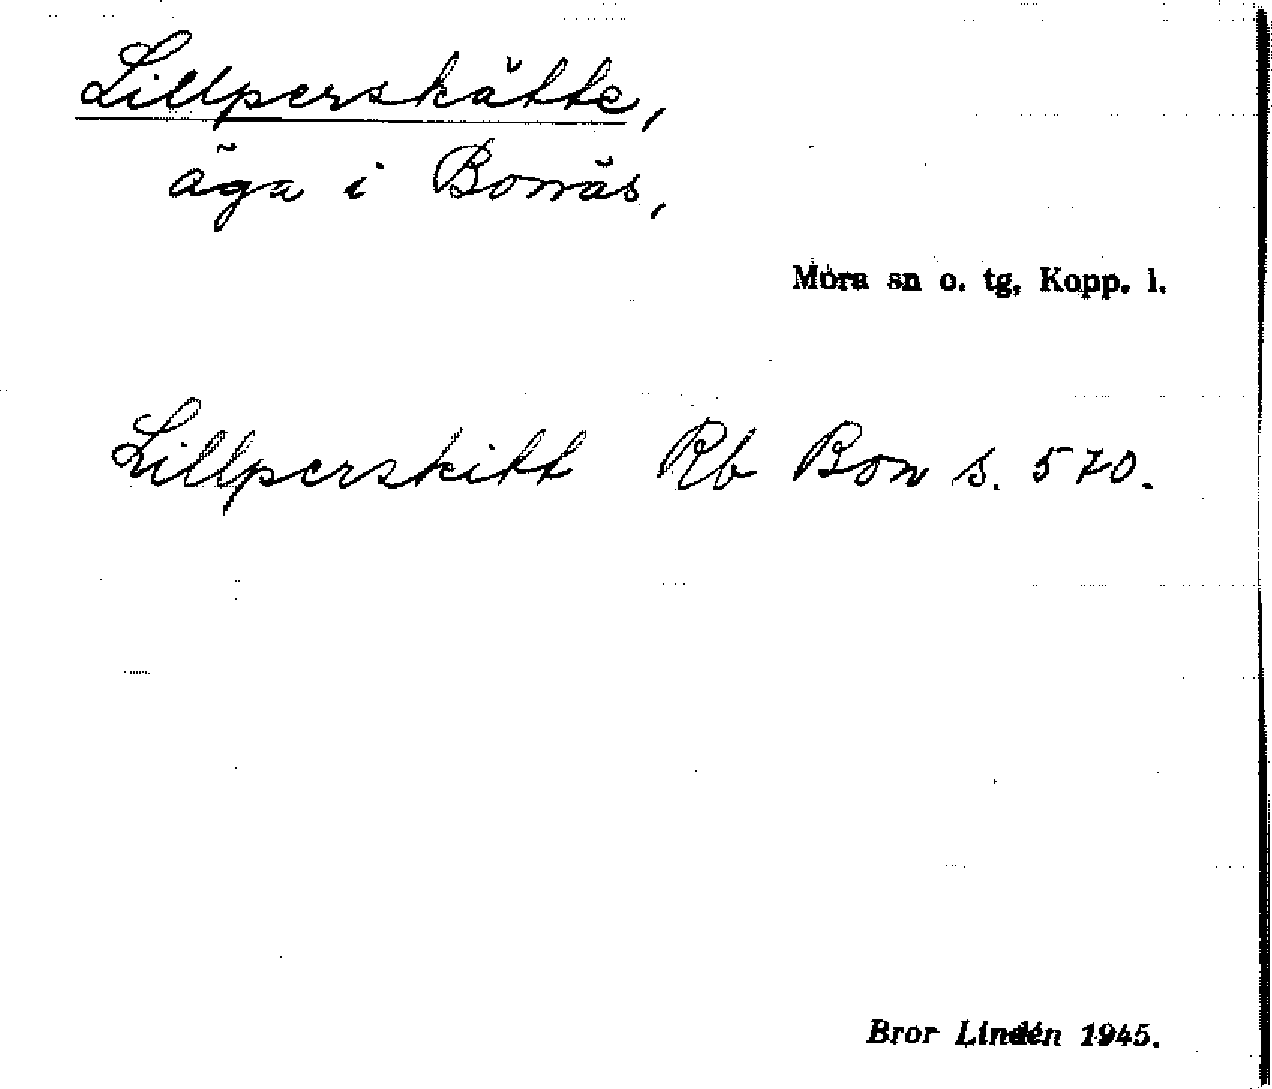 Lillperskätte,
äga i Bonäs,
Mora sn o. tg, Kopp. l.
Lillperskitt Rb Bon s. 570.
Bror Lindén 1945.